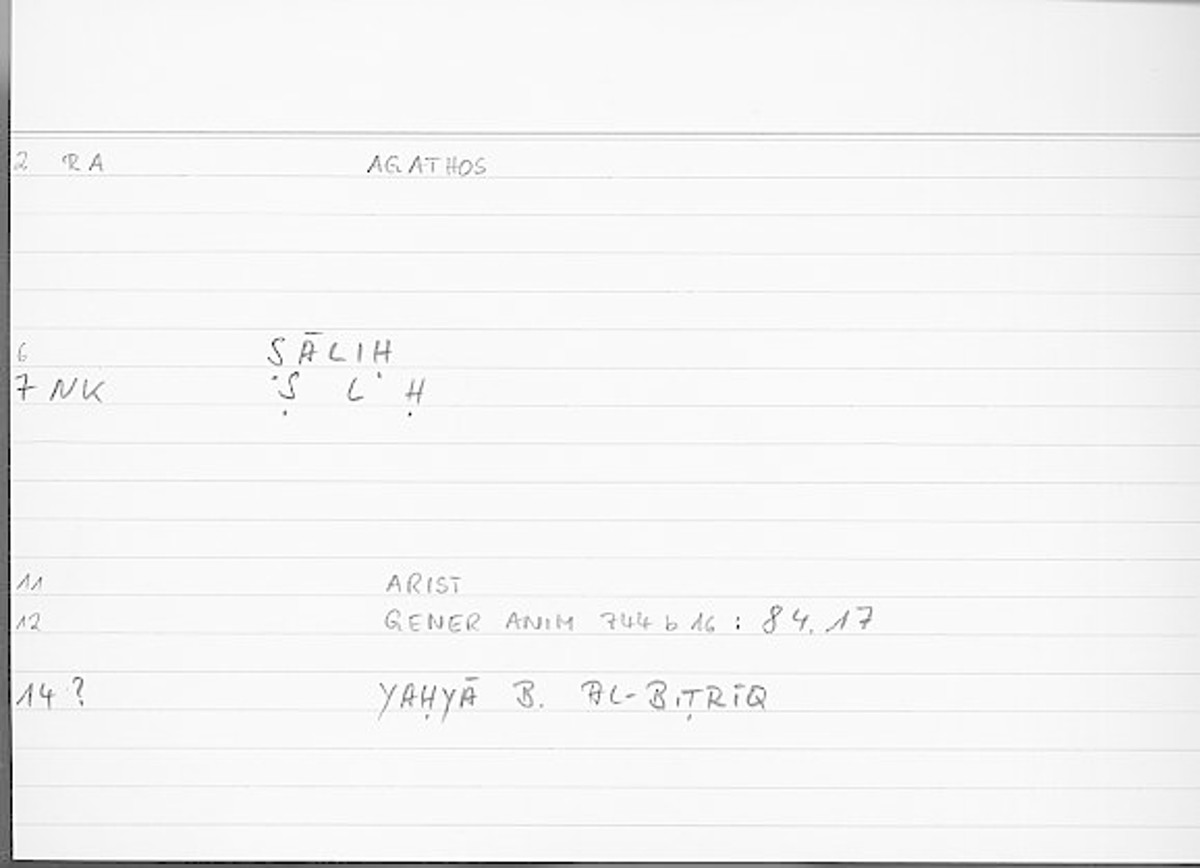 2 RA AGATHOS
6 ṢĀLIḤ
7 NK Ṣ L Ḥ
11 ARIST
12 GENER ANIM 744 b 16 : 84.17
14 ? YAḤYĀ B. AL-BIṬRĪQ